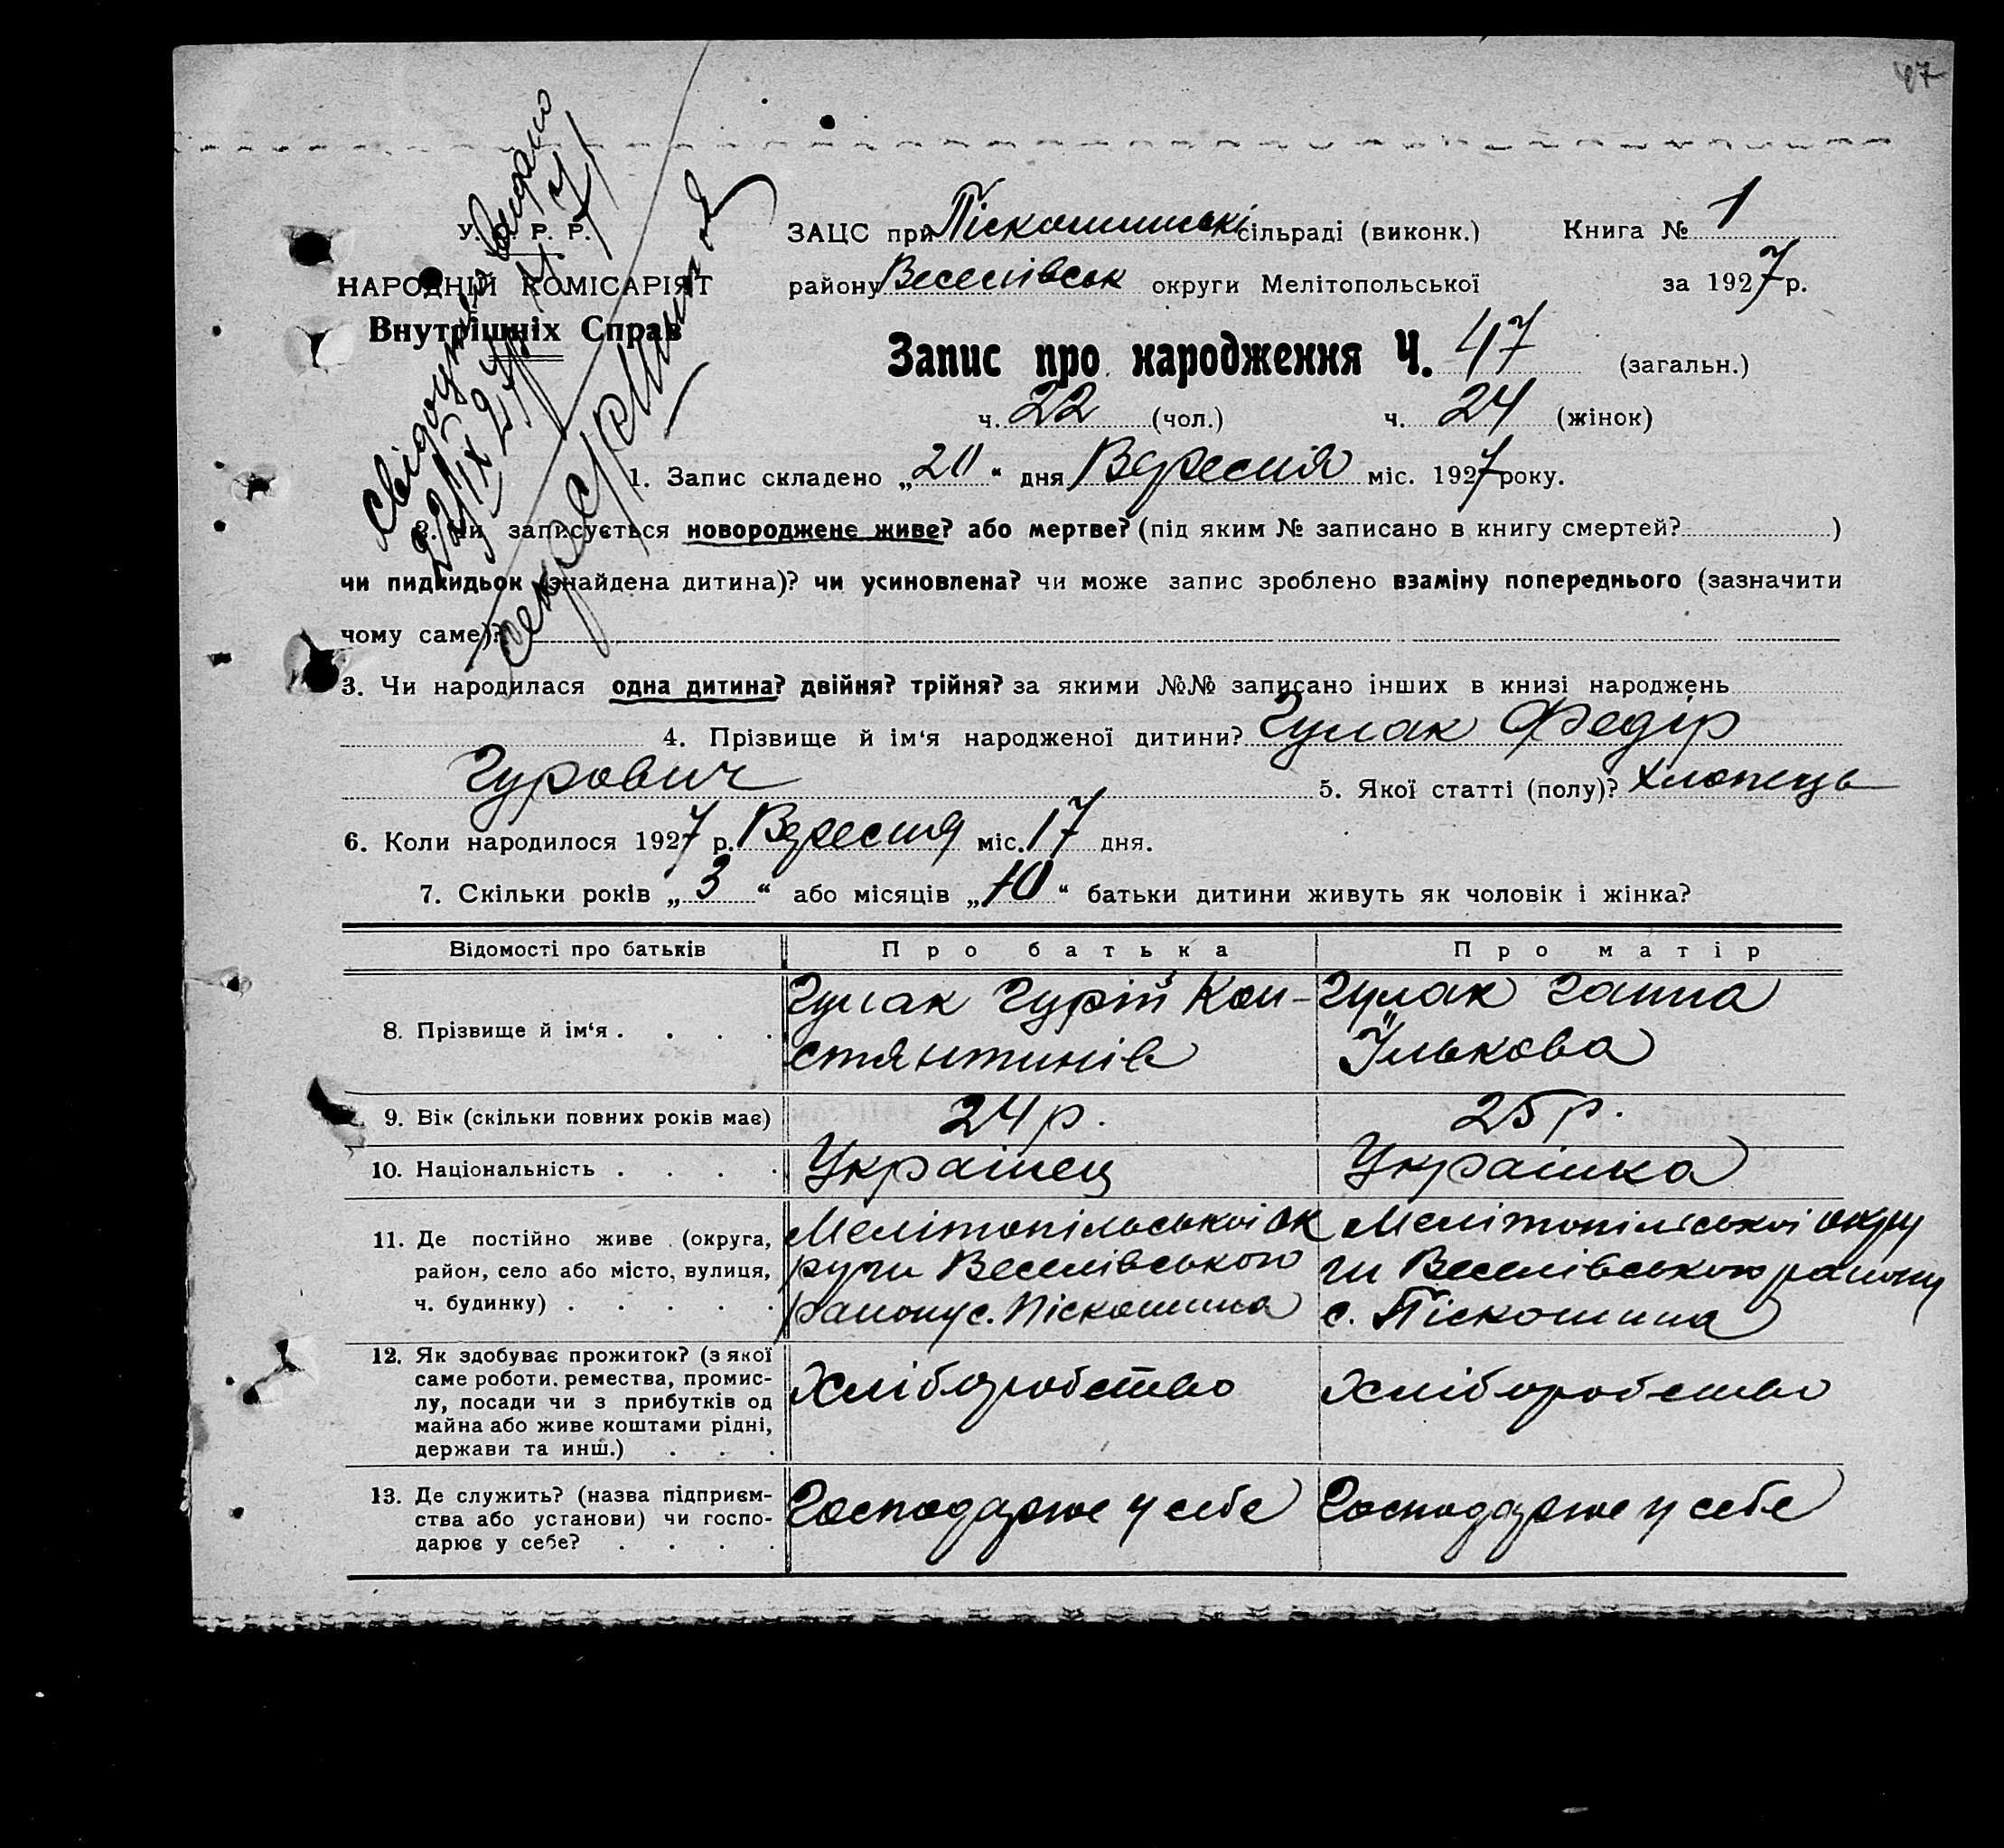 47
Свідоцтво видано
22/IX 27 р.
Секретар
У. С. Р. Р.
НАРОДНІЙ КОМІСАРІЯТ
Внутрішніх Справ
ЗАЦС при Піскошинській сільраді (виконк.) Книга № 1
району Веселівськ округи Мелітопольської за 1927 р.
Запис про народження Ч. 47 (загальн.)
ч. 22 (чол.) ч. 24 (жінок)
1. Запис складено „20“ дня Вересня міс. 1927 року.
2. Чи записується новороджене живе? або мертве? (під яким № записано в книгу смертей? )
чи пидкидьок (знайдена дитина)? чи усиновлена? чи може запис зроблено взаміну попереднього (зазначити
чому саме)?
3. Чи народилася одна дитина? двійня? трійня? за якими №№ записано інших в книзі народжень
4. Прізвище й ім‘я народженої дитини? Гулак Федір
Гурович 5. Якої статті (полу)? Хлопець
6. Коли народилося 1927 р. Вересня міс. 17 дня.
7. Скільки років „3“ або місяців „10“ батьки дитини живуть як чоловік і жінка?
Відомості про батьків Про батька Про матір
8. Прізвище й ім‘я . . . . Гулак Гурій Кон- Гулак Ганна
стянтинів Їлькова
9. Вік (скільки повних років має) 24 р. 25 р.
10. Національність . . . . Українец Українка
11. Де постійно живе (округа, Мелітопільської ок Мелітопільської окру
район, село або місто, вулиця, руги Веселівського ги Веселівського району
ч. будинку) . . . . . району с. Піскошина с. Піскошина
12. Як здобуває прожиток? (з якої
саме роботи. ремества, промис- Хліборобство Хліборобство
лу, посади чи з прибутків од
майна або живе коштами рідні,
держави та инш.) . . .
13. Де служить? (назва підприєм- Господарює у себе Господарює у себе
ства або установи) чи госпо-
дарює у себе? . . . .